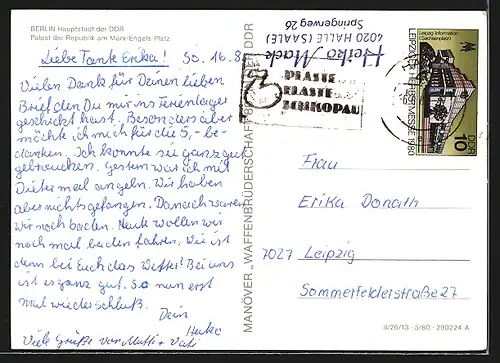 BERLIN Hauptstadt der DDR
Palast der Republik am Marx-Engels-Platz
Liebe Tante Erika! So. 16.8.
Vielen Dank für Deinen lieben
Brief den Du mir ins Ferienlager
geschickt hast. Besonders aber
möchte ich mich für die 5,- be-
danken. Ich konnte sie ganz gut
gebrauchen. Gestern war ich mit
Dieter mal angeln. Wir haben
aber nichts gefangen. Danach waren
wir noch baden. Heute wollen wir
noch mal baden fahren. Wie ist
denn bei Euch das Wetter? Bei uns
ist es ganz gut. So nun erst
mal wieder schluß.
Dein
Heiko
Viele Grüße von Mutti + Vati
MANÖVER „WAFFENBRÜDERSCHAFT 80" DDR
Heiko Mack
4020 HALLE (SAALE)
Springerweg 26
PLASTE
ELASTE
SCHKOPAU
Leipzig-Information
(Sachsenplatz)
LEIPZIGER HERBSTMESSE 1980
DDR
10
Frau
Erika Donath
7027 Leipzig
Sommerfelderstraße 27
II/26/13 - 5/80 - 290224 A